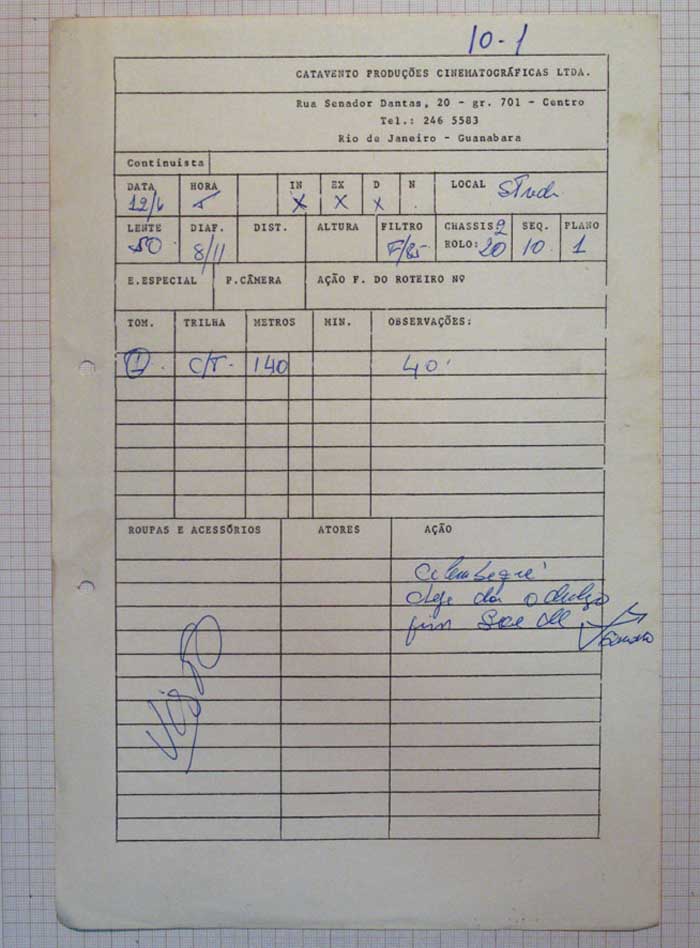 10-1
CATAVENTO PRODUÇÕES CINEMATOGRÁFICAS LTDA.
Rua Senador Dantas, 20 - gr. 701 - Centro
Tel.: 246 5583
Rio de Janeiro - Guanabara
Continuista
DATA HORA IN EX D N LOCAL
12/6 X X X
LENTE DIAF. DIST. ALTURA FILTRO CHASSIS 2 SEQ. PLANO
50 8/11 F/85 ROLO: 20 10 1
E.ESPECIAL P.CÂMERA AÇÃO F. DO ROTEIRO Nº
TOM. TRILHA METROS MIN. OBSERVAÇÕES:
1 C/T 140 40'
ROUPAS E ACESSÓRIOS ATORES AÇÃO
Visto